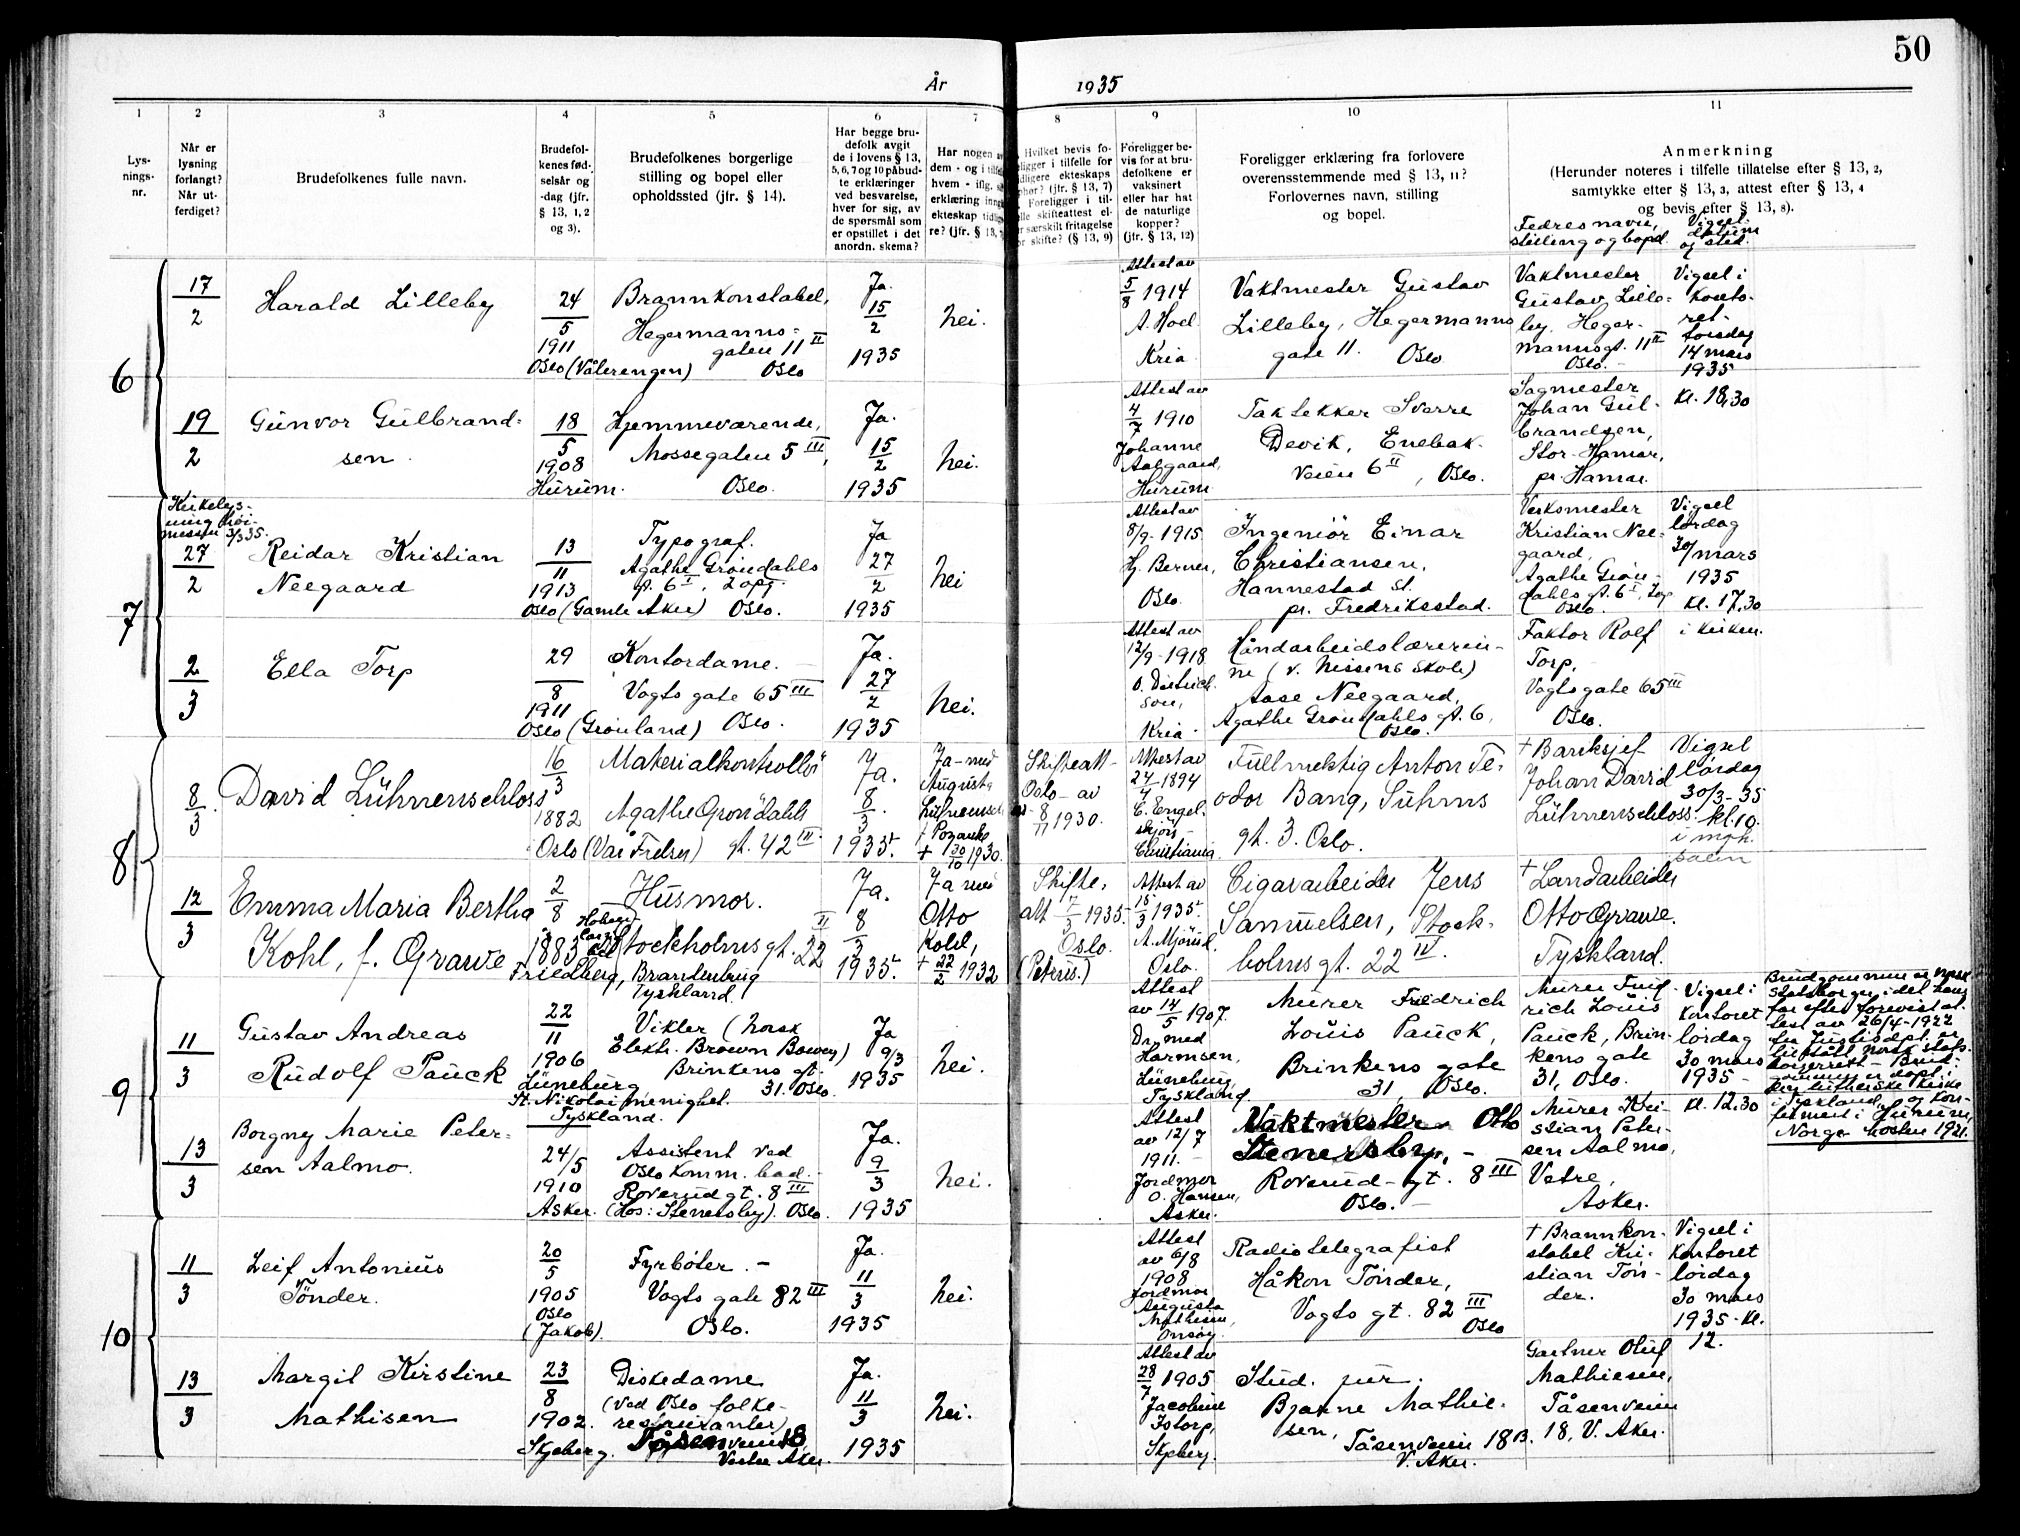 50
År 1935
1
2
3
4
5
6
7
8
9
10
11
Lys-
nings-
nr.
Når er
lysning
forlangt?
Når ut-
ferdiget?
Brudefolkenes fulle navn.
Brudefol-
kenes fød-
selsår og
-dag (jfr.
§ 13, 1, 2
og 3).
Brudefolkenes borgerlige
stilling og bopel eller
opholdssted (jfr. § 14).
Har begge bru-
defolk avgit
de i lovens § 13,
5, 6, 7 og 10 påbud-
te erklæringer
ved besvarelse,
hver for sig, av
de spørsmål som
er opstillet i det
anordn. skema?
Har nogen
dem - og i
hvem - iflg.
erklæring
ekteskap
re? (jfr. § 13,
Hvilket bevis fo-
i tilfelle for
ekteskaps
(jfr. § 13, 7)
Foreligger i til-
skifteattest el-
særskilt fritagelse
skifte? (§ 13, 9)
Foreligger be-
vis for at bru-
defolkene er
vaksinert
eller har hat
de naturlige
kopper?
(jfr. § 13, 12)
Foreligger erklæring fra forlovere
overensstemmende med § 13, 11?
Forlovernes navn, stilling
og bopel.
Anmerkning
(Herunder noteres i tilfelle tillatelse efter § 13, 2,
samtykke efter § 13, 3, attest efter § 13, 4
og bevis efter § 13, 8).
Fedres navn,
stilling og bopel.
Vigsel.
datum
og sted.
6
17/2
Harald Lilleby
24/5
1911
Oslo (Vålerengen)
Brannkonstabel,
Hegermanns-
gaten 11 II
Oslo
Ja.
15/2
1935
Nei.
Attest av
5/8 1914
A. Hoel
Kria
Vaktmester Gustav
Lilleby, Hegermanns
gate 11. Oslo
Vaktmester
Gustav Lille-
by, Heger-
mannsgt. 11 II
Oslo.
Vigsel i
Konto-
ret
torsdag
14 mars
1935
kl. 18,30
19/2
Gunvor Gulbrand-
sen.
18/5
1908
Hurum.
Hjemmeværende,
Mossegaten 5 III,
Oslo.
Ja.
15/2
1935
Nei.
Attest av
4/7 1910
Johanne
Aalgaard,
Hurum
Taktekker Sverre
Devik, Enebak-
veien 6 II, Oslo.
Sagmester
Johan Gul-
brandsen,
Stor-Hamar,
pr. Hamar.
7
Kirkelys-
ning høi-
messen 3/3 35.
27/2
Reidar Kristian
Neegaard
13/11
1913
Oslo (Gamle Aker)
Typograf.
Agathe Grøndahls
gt. 6 I, 2 opg.
Oslo.
Ja
27/2
1935
Nei
Attest av
8/9-1915
Hj. Berner,
Oslo.
Ingeniør Einar
Christiansen,
Hannestad st.
pr. Fredriksstad.
Verksmester
Kristian Nee-
gaard,
Agathe Grøn-
dahls gt. 6 I, 2op
Oslo.
Vigsel
lørdag
30/mars
1935
kl. 17,30
i kirken.
2/3
Ella Torp
29/8
1911
Oslo (Grønland)
Kontordame.
Vogts gate 65 III
Oslo.
Ja.
27/2
1935
Nei.
Attest av
12/9-1918
O. Dietrich-
son,
Kria.
Håndarbeidslærerin-
ne (v. Nissens skole)
Aase Neegaard,
Agathe Grøndahls gt. 6,
Oslo.
Faktor Rolf
Torp,
Vogts gate 65 III
Oslo.
8
8/3
David Lühnenschloss
16/3
1882
Oslo (Vår Frelser)
Materialkontrollør
Agathe Grøndahls
gt. 42 III.
Ja.
8/3
1935.
Ja - med
Augusta
† 30/10 1930.
Skifteatt-
Oslo - av
8/11 1930.
Attest av
24/7 1894
C. Engel-
Christiania.
Fullmektig Anton Te-
odor Bang, Suhms
gt. 3. Oslo.
† Banksjef
Johan David
Lühnenschloss.
Vigsel
lørdag
30/3-35
kl. 10.
i mgh.
salen
12/3
Emma Maria Bertha
Kohl, f. Grawe
2/8
1883
Friedberg, Brandenburg
Tyskland.
Husmor.
Stockholmsgt. 22 II
Ja.
8/3
1935.
Ja med
Otto
Kohl,
† 22/2 1932
Skifte,
att 7/3 1935.
Oslo.
(Petrus.)
Attest av
15/3 1935.
Oslo.
Cigararbeider Jens
Samuelsen, Stock-
holmsgt. 22 IV.
† Landarbeider
Otto Grawe.
Tyskland.
9
11/3
Gustav Andreas
Rudolf Pauck
22/11
1906
Lüneburg,
St. Nikolai menighet.
Tyskland.
Vikler (Norsk
Elektr. Brown Bowery)
Brinkens gt.
31. Oslo.
Ja
9/3
1935
Nei.
Attest
av 14/5 1907.
Dr. med
Harmsen,
Lüneburg,
Tyskland.
Murer Friedrich
Louis Pauck,
Brinkens gate
31, Oslo.
Murer Fried-
rich Louis
Pauck, Brin-
kens gate
31, Oslo.
Vigsel i
Kontoret
lørdag
30 mars
1935 -
kl. 12.30
Brudgommen er norsk
statsborger, i det han
før efter forevist at-
test av 26/4-1922
fra Justisdpt. har
bibeholdt norsk stats-
borgerrett - Brud-
gommen er døpt i
den lutherske kirke
i Tyskland, og kon-
firmert i Hurum,
Norge høsten 1921.
13/3
Borgny Marie Peter-
sen Aalmo.
24/5
1910
Asker.
Assistent ved
Oslo komm. bad.-
Roverudgt. 8 III
(Hos: Stenersby). Oslo.
Ja.
9/3
1935
Nei.
Attest
av 12/7
1911.
Jordmor
O. Hansen,
Asker.
Vaktmester Otto
Stenersby, -
Roverud-gt. 8 III
Oslo. -
Murer Kri-
stian Peter-
sen Aalmo,
Vetre,
Asker.
10
11/3
Leif Antonius
Tönder.
20/5
1905
Oslo
(Jakob).
Fyrbøter. -
Vogts gate 82 III
Oslo.
Ja.
11/3
1935
Nei.
Attest
av 6/8
1908
Jordmor
Augusta
Mathisen,
Onsøy.
Radiotelegrafist
Håkon Tönder,
Vogts gt. 82 III
Oslo
† Brannkon-
stabel Kri-
stian Tön-
der.
Vigsel i
Kontoret
lørdag
30 mars
1935 - kl.
12.
13/3
Margit Kirstine
Mathisen
23/8
1902.
Skjeberg.
Diskedame
(ved Oslo folke-
restauranter)
Tåsenveien 18,
Vestre Aker.
Ja.
11/3
1935
Nei.
Attest av
28/7 1905
Jacobine
Istorp,
Skjeberg.
Stud. jur.
Bjarne Mathie-
sen,
Tåsenveien 18 B.
V. Aker.
Gartner Oluf
Mathiesen,
Tåsenveien
18, V. Aker.